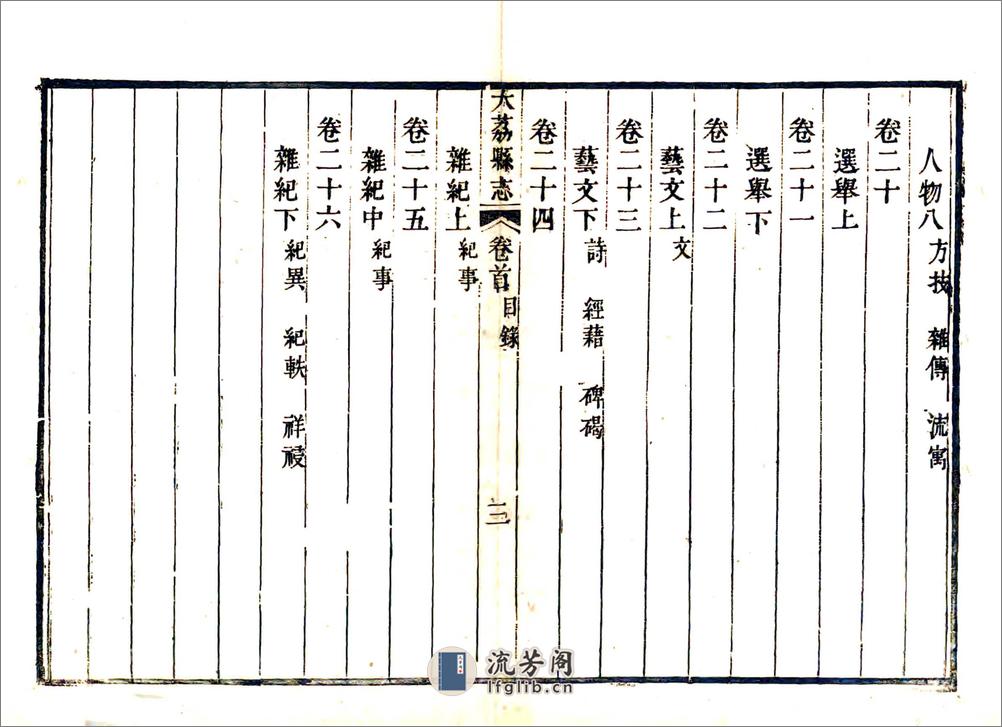 人物八 方技 雜傳 流寓
卷二十
選舉上
卷二十一
選舉下
卷二十二
藝文上 文
卷二十三
藝文下 詩 經藉 碑碣
卷二十四
大荔縣志 卷首 目錄 三
雜紀上 紀事
卷二十五
雜紀中 紀事
卷二十六
雜紀下 紀異 紀軼 祥祲
流芳阁
lfglib.cn